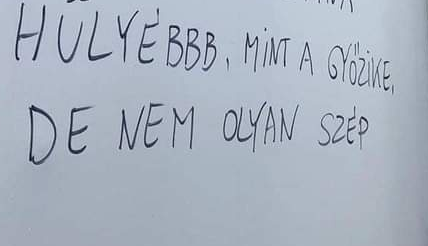 HULYÉBBB, MINT A GYŐZIKE,
DE NEM OLYAN SZÉP